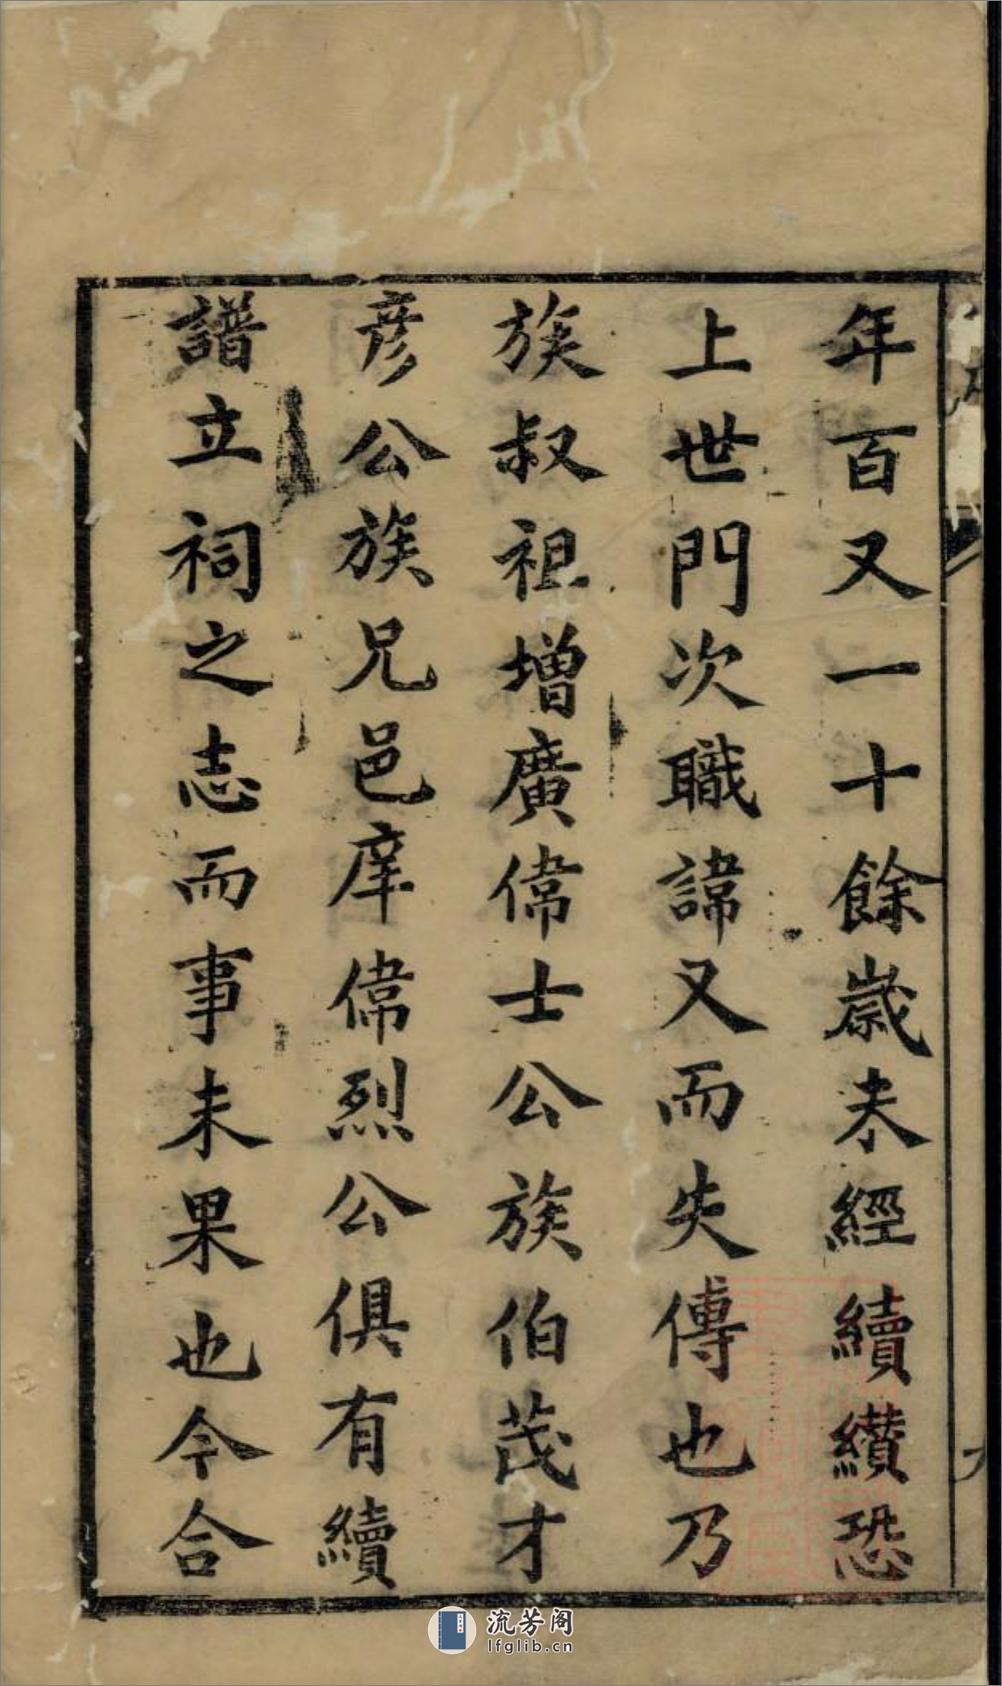 年百又一十餘歲未經續纘恐
上世門次職諱又而失傳也乃
族叔祖增廣偉士公族伯茂才
彦公族兄邑庠偉烈公俱有續
譜立祠之志而事未果也今合
流芳阁
lfglib.cn